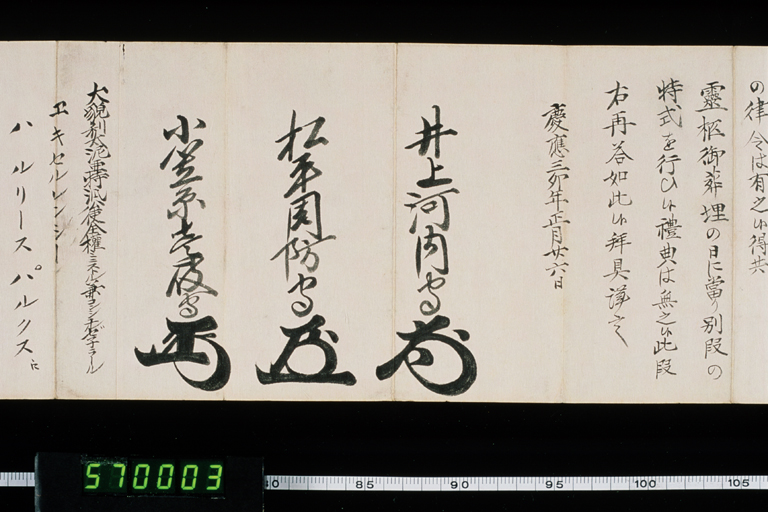 の律令は有之候得共
靈柩御葬埋の日に當り別段の
特式を行ひ候禮典は無之候此段
右再答如此候拜具謹言
慶應三卯年正月廿六日
井上河内守
松平周防守
小笠原壱岐守
大貌利太泥亜特派全權ミニストル兼コンシュルゼネラール
エキセルレンシー
ハルリースパルクスに
570003
85
90
95
100
105